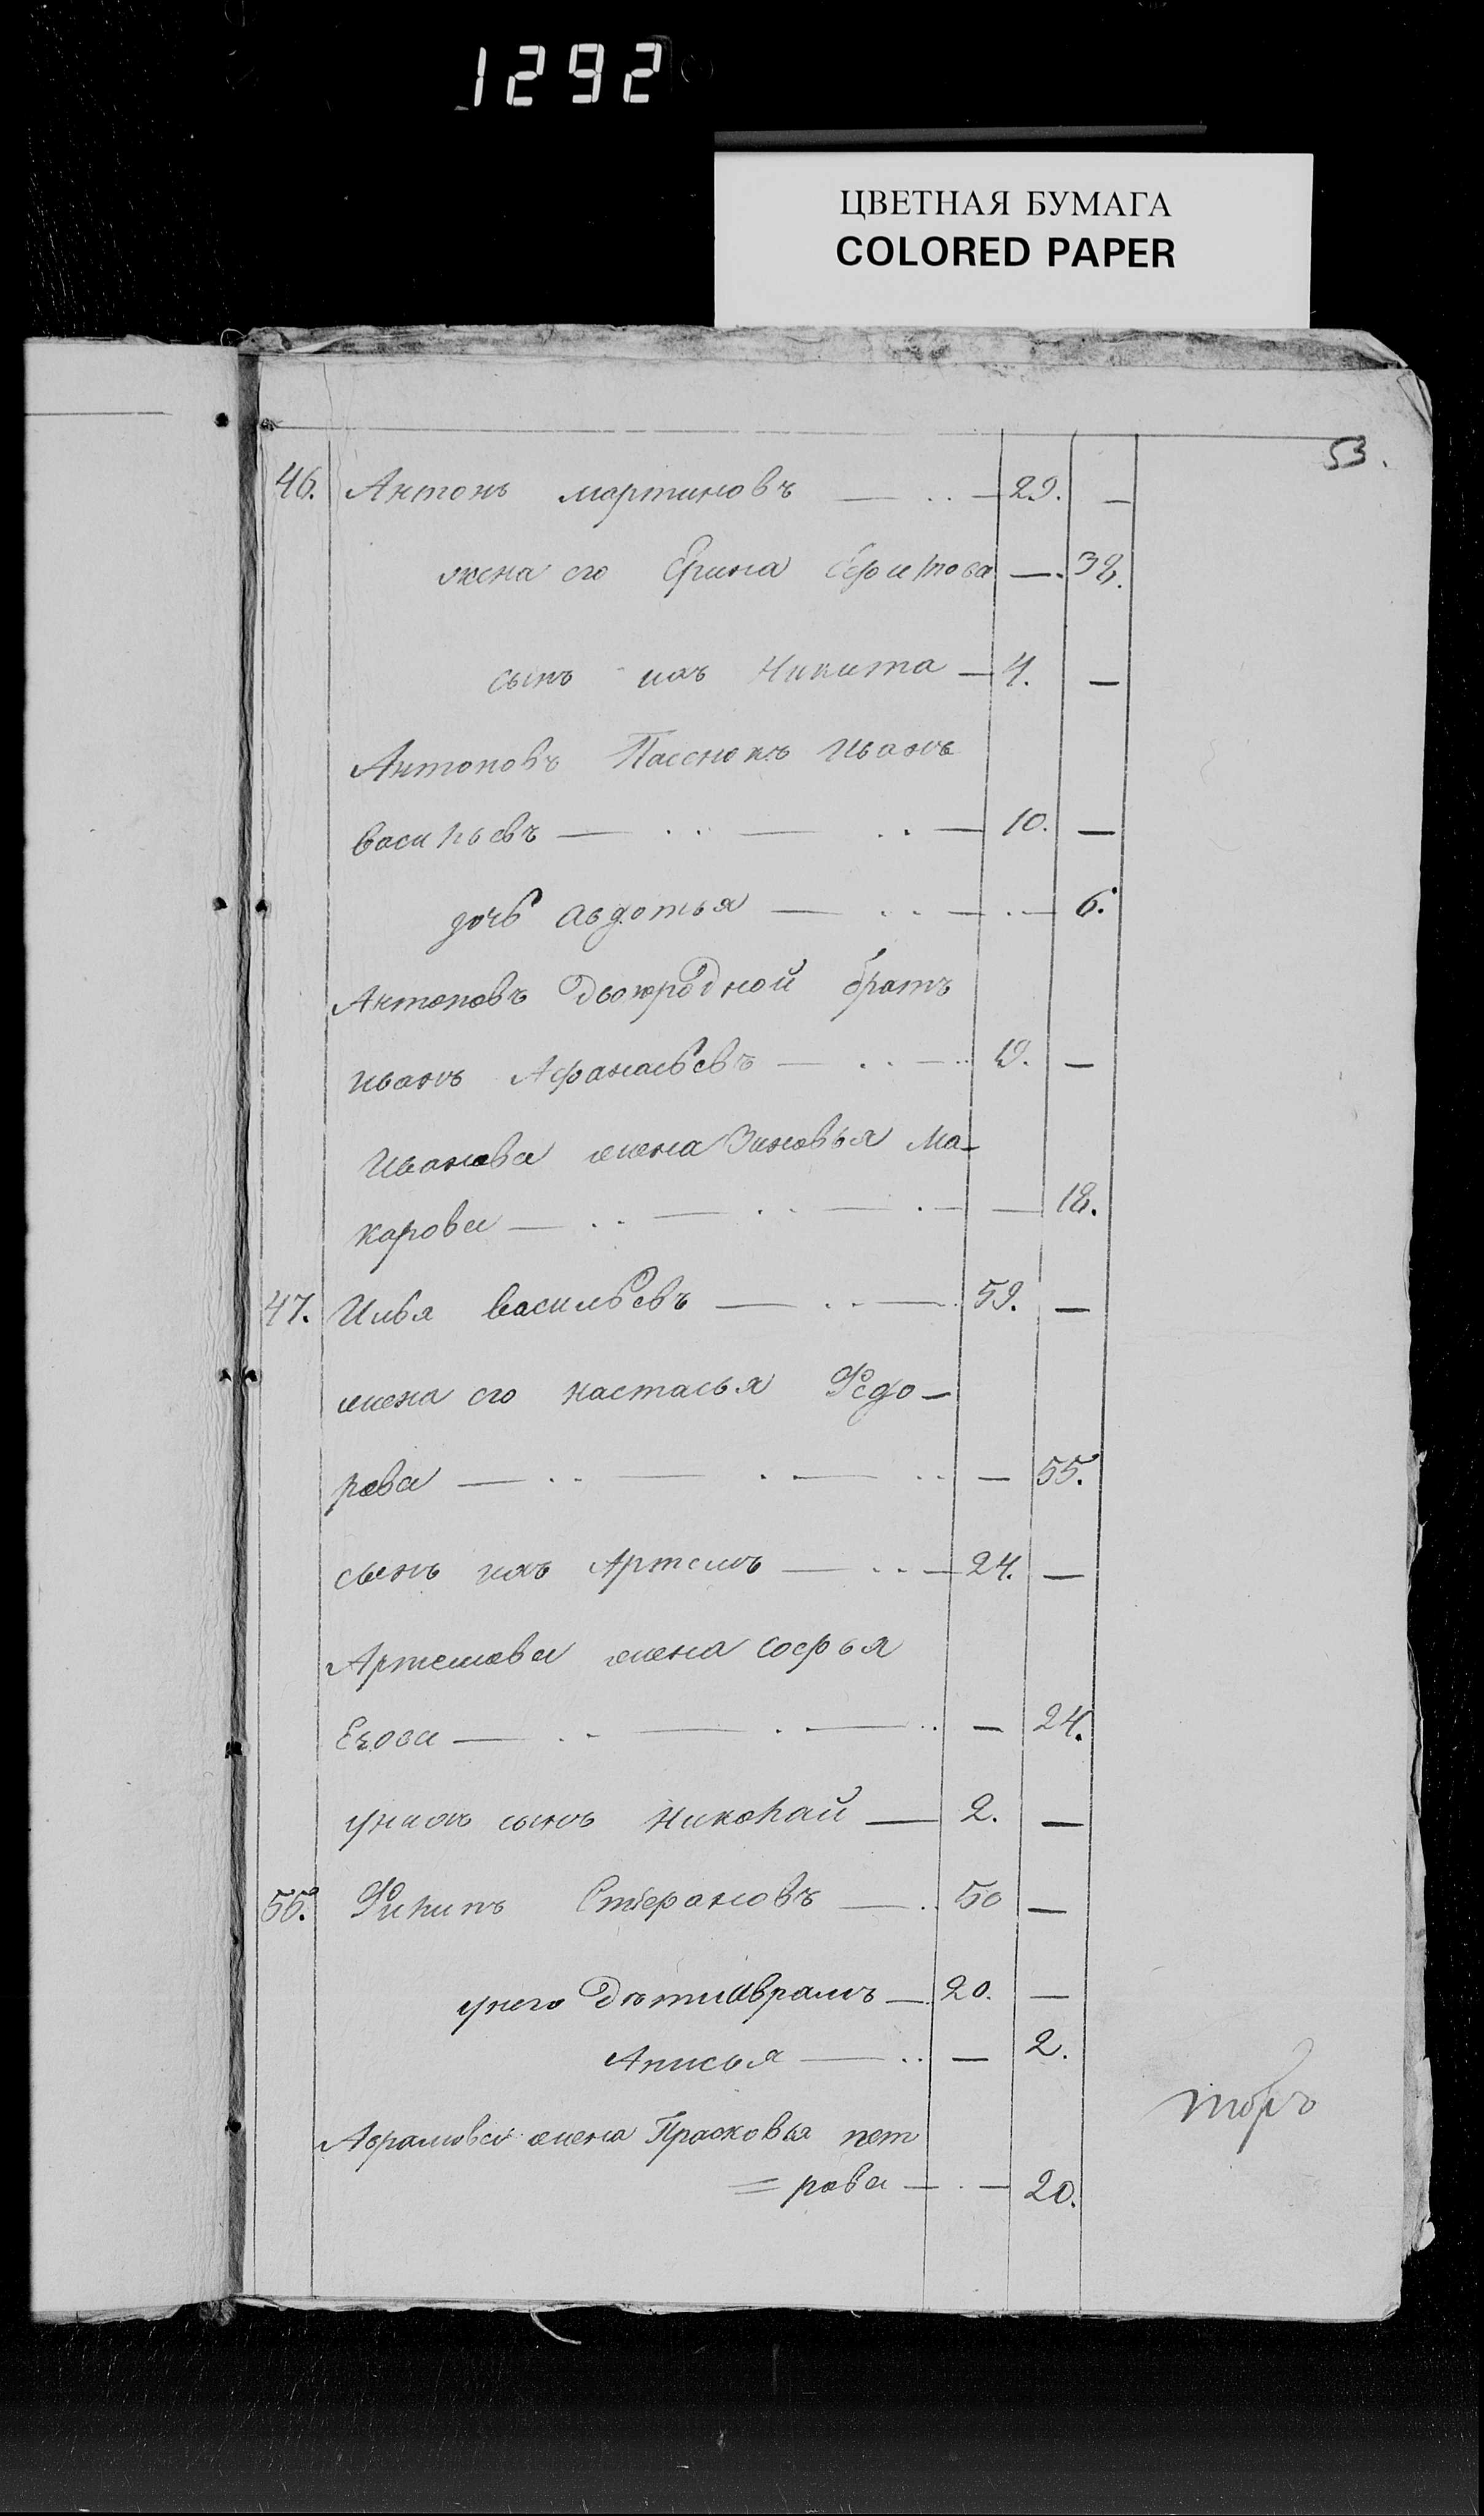 1292
ЦВЕТНАЯ БУМАГА
COLORED PAPER
53.
46. Антонъ мартиновъ — .. — 29. —
жена его Ерина — . 38.
сынъ ихъ Никита — 4. —
Антоновъ Пасснокъ Иванъ
васильевъ — .. — .. — 10. —
дочь авдотья — .. — . — 6.
Антоновъ Двоюродной братъ
иванъ Афанасьевъ — .. — .. 19. —
Иванова жена Зиновья Ма-
карова — .. — .. — . — — 18.
47. Илья васильевъ — .. — . 59. —
жена его настасья Федо-
рова — .. — . — .. — 55.
сынъ ихъ Артемъ — .. — 24. —
Артемова жена софья
— .. — . — .. — 24.
у нихъ сынъ николай — 2. —
56. Филипъ Стефановъ — . 50 —
у него Дѣти аврамъ — 20. —
Анисья — .. — 2.
Аврамова жена Прасковья пет
= рова — . — 20.